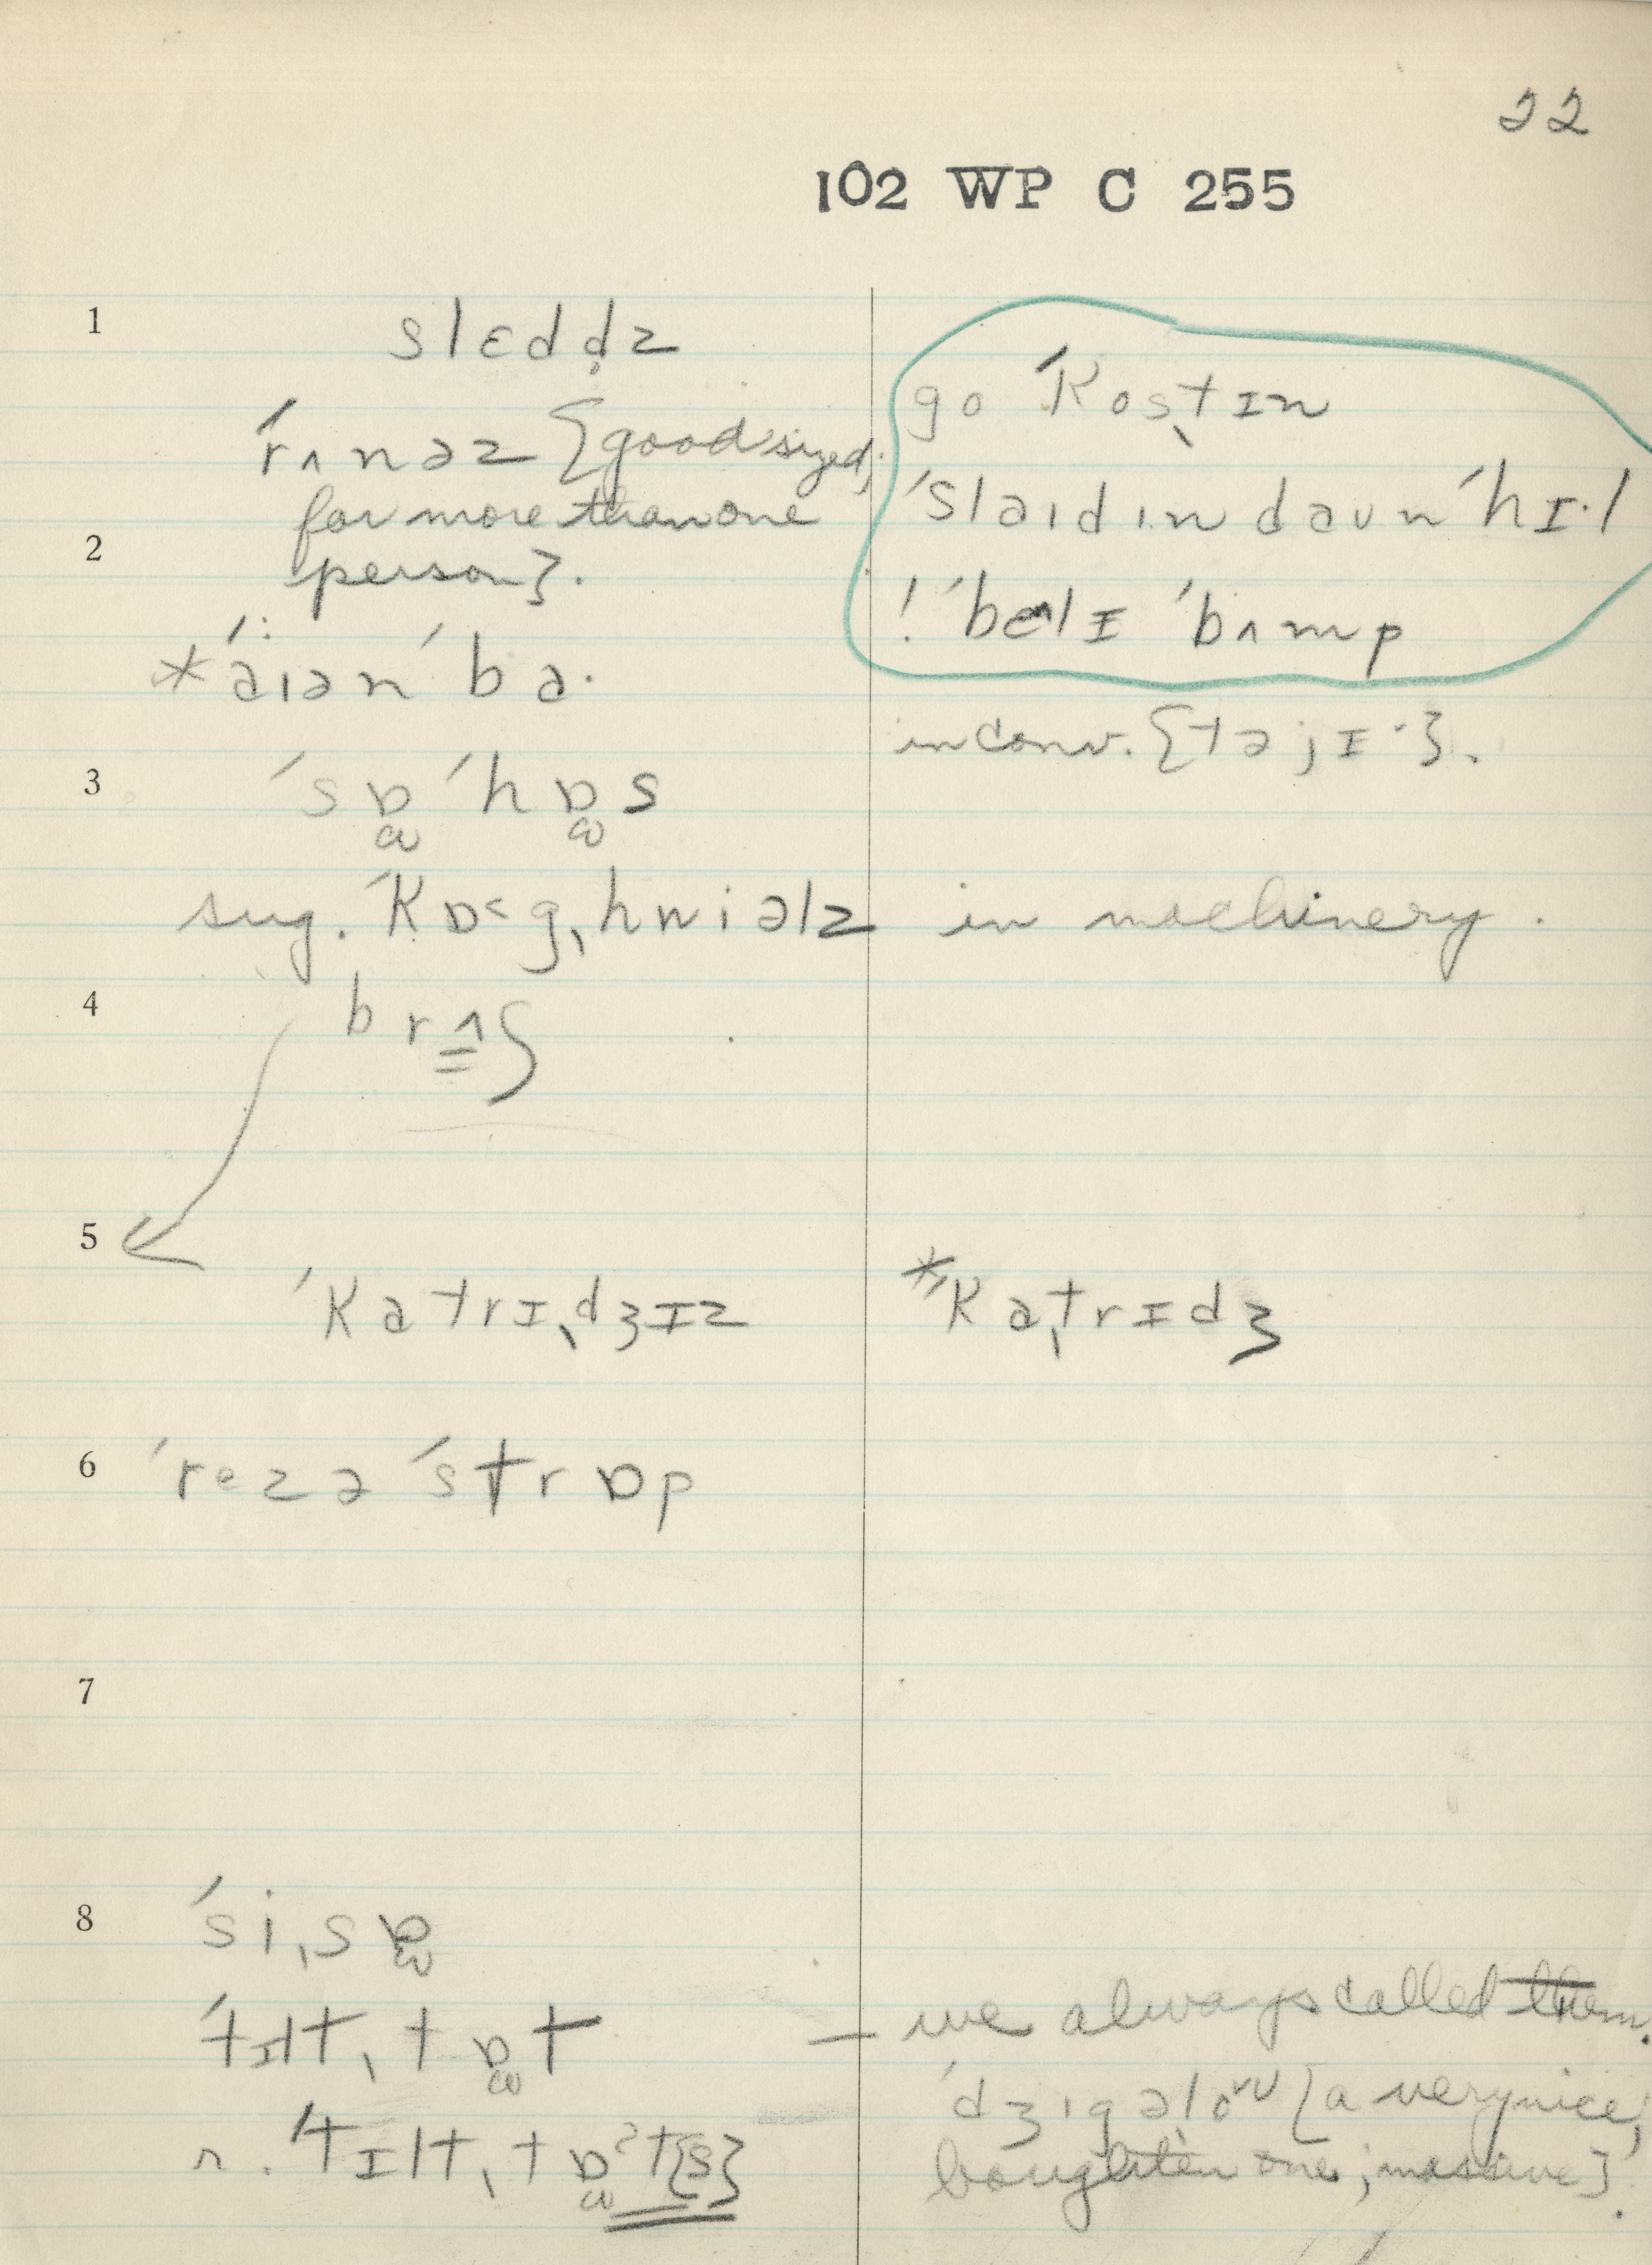 22
102 WP C 255
1 slɛdd̥z
ˈrʌnəz {good sized,
for more than one
2 person}.
go ˈkosˌtɪn
ˈslaɪdɪn daʊn ˈhɪ·l
! ˈbelɪ ˈbʌmp
*ˈaɪən ˈba·
in conv. {təjɪ·}.
3 ˈsɒ ˈhɒs
sug. ˈkɒ˂gˌhwiəlz in machinery.
4 brʌ}
5
ˈkatrɪˌdʒɪz *ˈkaˌtrɪdʒ
6 ˈrezə ˈstrɒp
7
8 ˈsiˌsɒ
ˈtɪltˌtɒt — we always called them.
ˈdʒɪgəˌlo {a very nice,
r. ˈtɪltˌtɒˀt{s} boughten one; massive}.